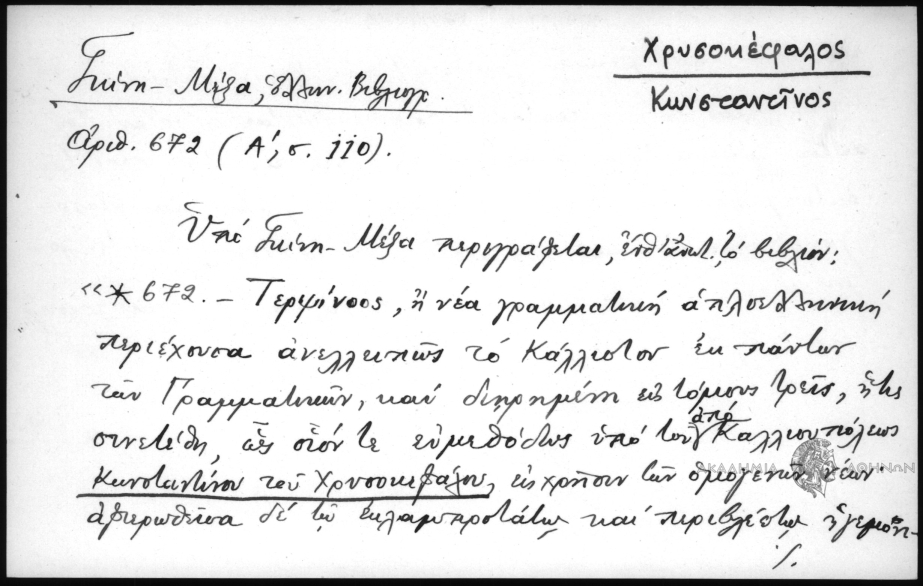 Χρυσοκέφαλος
Κωνσταντῖνος
Γκίνη - Μέξα, Ἑλλην. Βιβλιογρ.
Ἀριθ. 672 (Α', σ. 110).
Ὑπό Γκίνη - Μέξα περιγράφεται, ἔνθ' ἀνωτ., τό βιβλίον:
«* 672. – Τερψίνοος, ἤ νέα γραμματική ἁπλοελληνική
περιέχουσα ἀνελλειπῶς τό Κάλλιστον ἐκ πάντων
τῶν Γραμματικῶν, καί διῃρημένη εἰς τόμους τρεῖς, ἥτις
συνετέθη, ὡς οἷόν τε εὐμεθόδως ὑπό τοῦ ἀπό Καλλιουπόλεως
Κωνσταντίνου τοῦ Χρυσοκεφάλου, εἰς χρῆσιν τῶν ὁμογενῶν νέων·
ἀφιερωθεῖσα δέ τῷ ἐκλαμπροτάτῳ καί περιβλέπτῳ ἡγεμόνι-
./.
ΑΚΑΔΗΜΙΑ ΑΘΗΝΩΝ